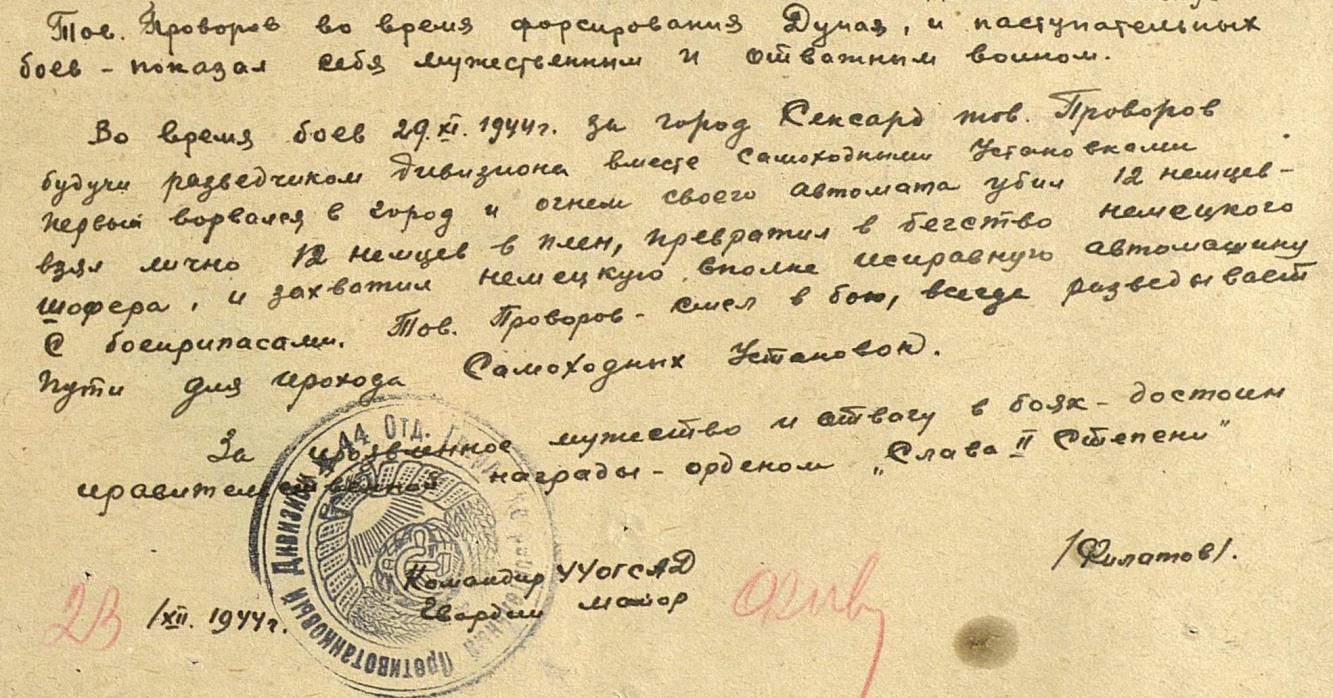 Тов. Проворов во время форсирования Дуная, и наступательных
боев - показал себя мужественным и отважным воином.
Во время боев 29.XI.1944г. за город Сексард тов. Проворов
будучи разведчиком дивизиона вместе самоходными Установками
первый ворвался в город и огнем своего автомата убил 12 немцев -
взял лично 12 немцев в плен, превратил в бегство немецкого
шофера, и захватил немецкую вполне исправную автомашину
с боеприпасами. Тов. Проворов - смел в бою, всегда разведывает
пути для прохода Самоходных Установок.
За проявленное мужество и отвагу в боях - достоин
правительственной награды - орденом „Слава II Степени"
Командир 44 ОГСАД /Филатов/.
Гвардии майор
1/XII. 1944г.
23
Противотанковый Дивизион 44 Отд.